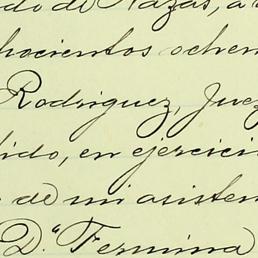 do de Nazas, a
hocientos ochen
Rodriguez, Juez
dido, en ejercici
de mi asisten
D.ª Fermina